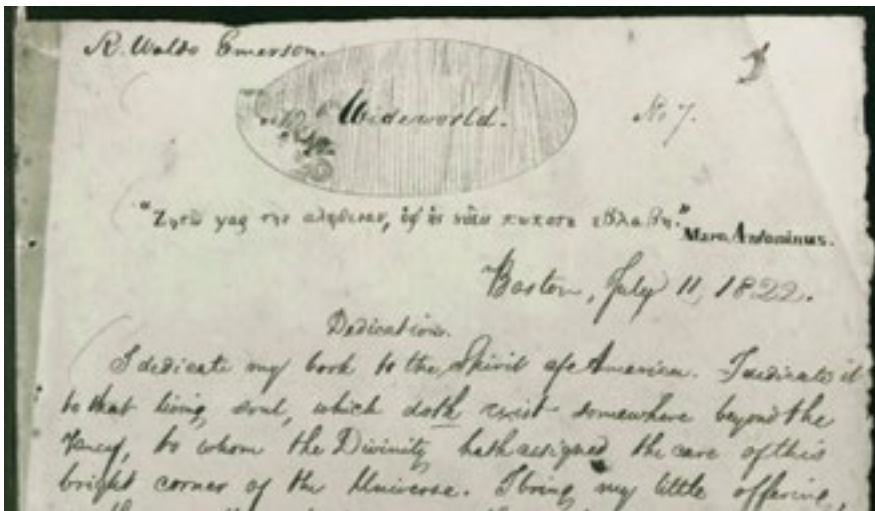 R. Waldo Emerson.
Wideworld.
No 7.
"Ζητω γας την αληθειαν, ὑφ ἡς
Marc. Antoninus.
Boston, July 11, 1822.
Dedication.
I dedicate my book to the Spirit of America. I dedicate it
to that living soul, which doth exist somewhere beyond the
Fancy, to whom the Divinity hath assigned the care of this
bright corner of the Universe. I bring my little offering,